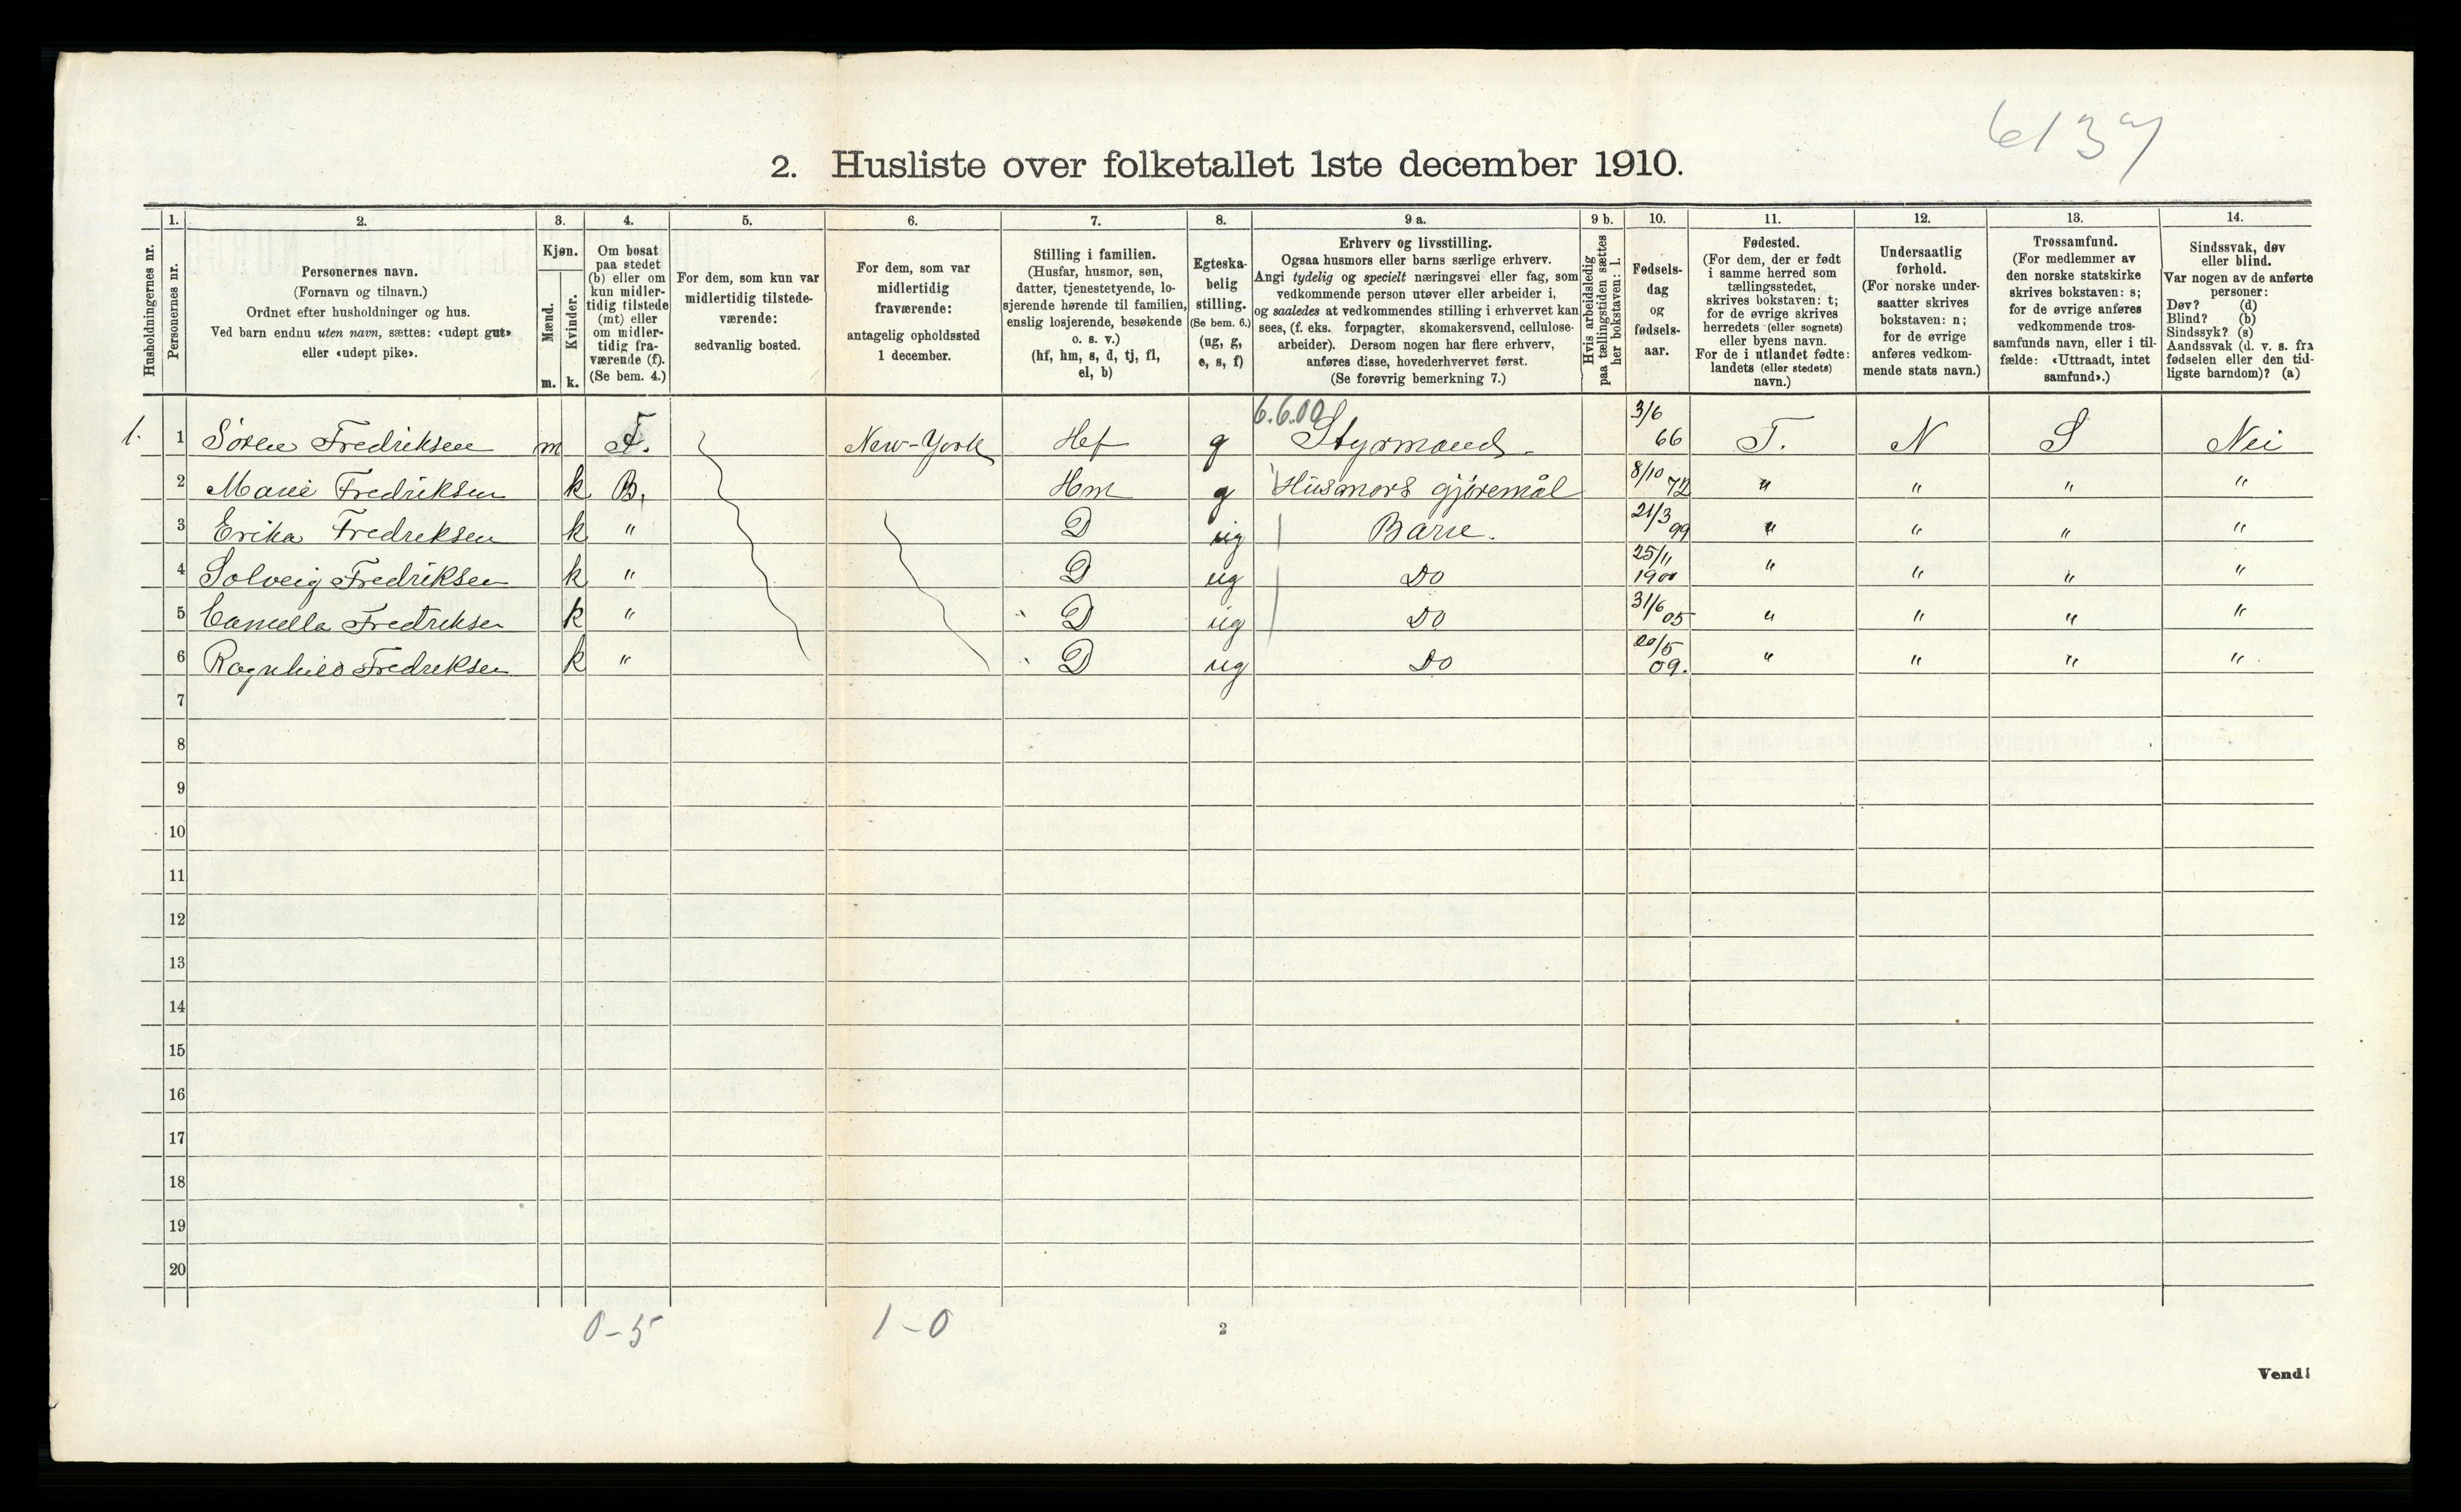 6137
2. Husliste over folketallet 1ste december 1910.
Husholdningernes nr.
1. Personernes nr.
2. Personernes navn.
(Fornavn og tilnavn.)
Ordnet efter husholdninger og hus.
Ved barn endnu uten navn, sættes: «udøpt gut»
eller «udøpt pike».
3. Kjøn.
Mænd. m.
Kvinder. k.
4. Om bosat
paa stedet
(b) eller om
kun midler-
tidig tilstede
(mt) eller
om midler-
tidig fra-
værende (f).
(Se bem. 4.)
5. For dem, som kun var
midlertidig tilstede-
værende:
sedvanlig bosted.
6. For dem, som var
midlertidig
fraværende:
antagelig opholdssted
1 december.
7. Stilling i familien.
(Husfar, husmor, søn,
datter, tjenestetyende, lo-
sjerende hørende til familien,
enslig losjerende, besøkende
o. s. v.)
(hf, hm, s, d, tj, fl,
el, b)
8. Egteska-
belig
stilling.
(Se bem. 6.)
(ug, g,
e, s, f)
9 a. Erhverv og livsstilling.
Ogsaa husmors eller barns særlige erhverv.
Angi tydelig og specielt næringsvei eller fag, som
vedkommende person utøver eller arbeider i,
og saaledes at vedkommendes stilling i erhvervet kan
sees, (f. eks. forpagter, skomakersvend, cellulose-
arbeider). Dersom nogen har flere erhverv,
anføres disse, hovederhvervet først.
(Se forøvrig bemerkning 7.)
9 b. Hvis arbeidsledig
paa tællingstiden sættes
her bokstaven: l.
10. Fødsels-
dag
og
fødsels-
aar.
11. Fødested.
(For dem, der er født
i samme herred som
tællingsstedet,
skrives bokstaven: t;
for de øvrige skrives
herredets (eller sognets)
eller byens navn.
For de i utlandet fødte:
landets (eller stedets)
navn.)
12. Undersaatlig
forhold.
(For norske under-
saatter skrives
bokstaven: n;
for de øvrige
anføres vedkom-
mende stats navn.)
13. Trossamfund.
(For medlemmer av
den norske statskirke
skrives bokstaven: s;
for de øvrige anføres
vedkommende tros-
samfunds navn, eller i til-
fælde: «Uttraadt, intet
samfund».)
14. Sindssvak, døv
eller blind.
Var nogen av de anførte
personer:
Døv? (d)
Blind? (b)
Sindssyk? (s)
Aandssvak (d. v. s. fra
fødselen eller den tid-
ligste barndom)? (a)
6.6.00
1. 1 Søren Fredriksen m F. New-York Hf g Styrmand. 3/6 66 T. N S Nei
2 Marie Fredriksen k B. Hm g Husmors gjøremål 8/10 72 " " " "
3 Erika Fredriksen k " D ug Barn. 21/3 99 " " " "
4 Solveig Fredriksen k " D ug Do 25/11 1900 " " " "
5 Camella Fredriksen k " D ug Do 31/6 05 " " " "
6 Ragnhild Fredriksen k " D ug Do 20/5 09. " " " "
7
8
9
10
11
12
13
14
15
16
17
18
19
20
0-5 1-0
2
Vend!